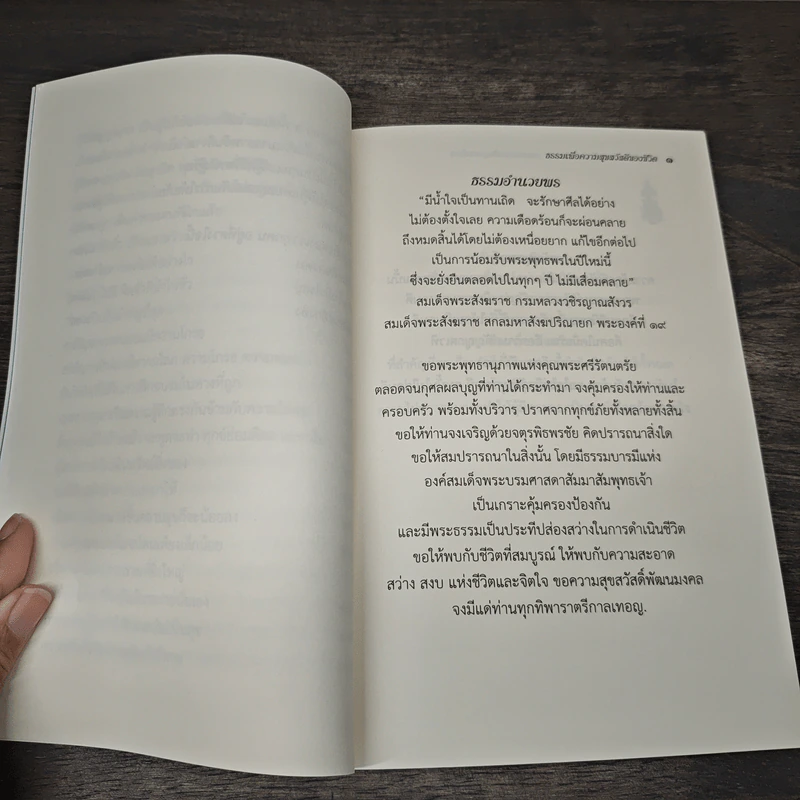 ธรรมเพื่อความสุขสวัสดีของชีวิต ๑
ธรรมอำนวยพร
"มีน้ำใจเป็นทานเถิด จะรักษาศีลได้อย่าง
ไม่ต้องตั้งใจเลย ความเดือดร้อนก็จะผ่อนคลาย
ถึงหมดสิ้นได้โดยไม่ต้องเหนื่อยยาก แก้ไขอีกต่อไป
เป็นการน้อมรับพระพุทธพรในปีใหม่นี้
ซึ่งจะยั่งยืนตลอดไปในทุกๆ ปี ไม่มีเสื่อมคลาย"
สมเด็จพระสังฆราช กรมหลวงวชิรญาณสังวร
สมเด็จพระสังฆราช สกลมหาสังฆปริณายก พระองค์ที่ ๑๙
ขอพระพุทธานุภาพแห่งคุณพระศรีรัตนตรัย
ตลอดจนกุศลผลบุญที่ท่านได้กระทำมา จงคุ้มครองให้ท่านและ
ครอบครัว พร้อมทั้งบริวาร ปราศจากทุกข์ภัยทั้งหลายทั้งสิ้น
ขอให้ท่านจงเจริญด้วยจตุรพิธพรชัย คิดปรารถนาสิ่งใด
ขอให้สมปรารถนาในสิ่งนั้น โดยมีธรรมบารมีแห่ง
องค์สมเด็จพระบรมศาสดาสัมมาสัมพุทธเจ้า
เป็นเกราะคุ้มครองป้องกัน
และมีพระธรรมเป็นประทีปส่องสว่างในการดำเนินชีวิต
ขอให้พบกับชีวิตที่สมบูรณ์ ให้พบกับความสะอาด
สว่าง สงบ แห่งชีวิตและจิตใจ ขอความสุขสวัสดิ์พัฒนมงคล
จงมีแด่ท่านทุกทิพาราตรีกาลเทอญ.